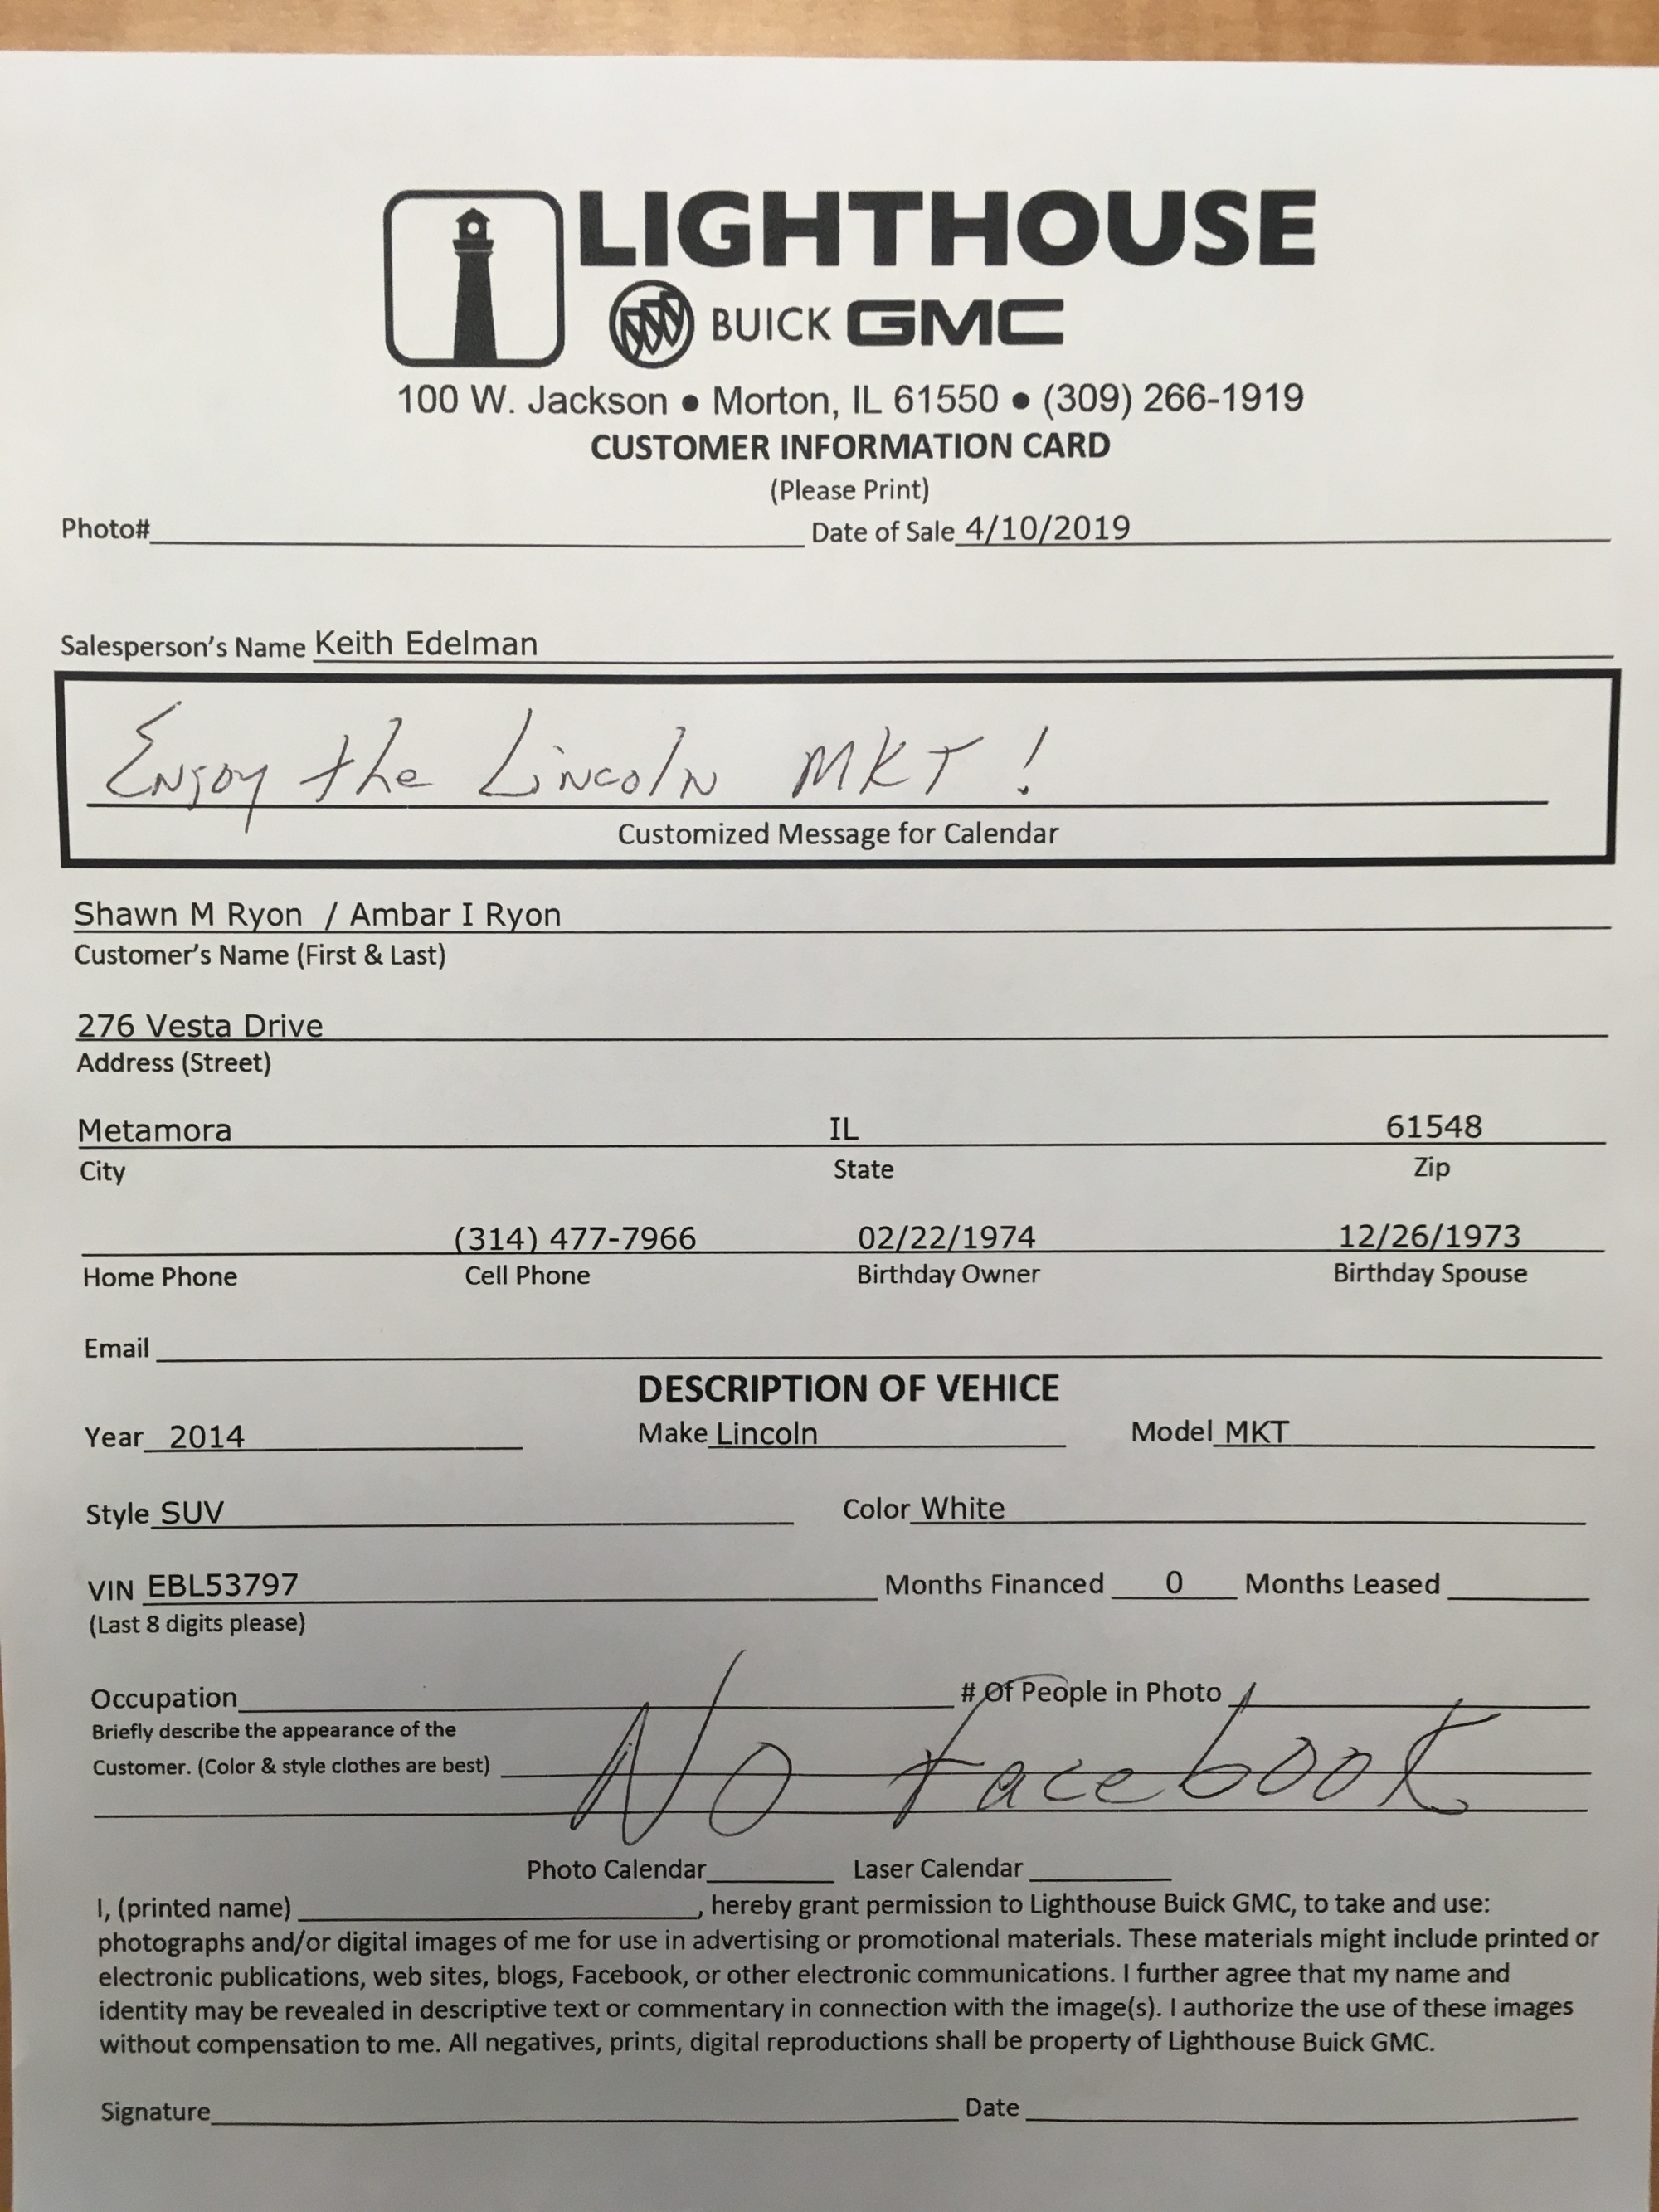 LIGHTHOUSE
BUICK GMC
100 W. Jackson • Morton, IL 61550 • (309) 266-1919
CUSTOMER INFORMATION CARD
(Please Print)
Photo#____ Date of Sale 4/10/2019
Salesperson's Name Keith Edelman
Enjoy the Lincoln MKT!
Customized Message for Calendar
Shawn M Ryon / Ambar I Ryon
Customer's Name (First & Last)
276 Vesta Drive
Address (Street)
Metamora IL 61548
City State Zip
(314) 477-7966 02/22/1974 12/26/1973
Home Phone Cell Phone Birthday Owner Birthday Spouse
Email
DESCRIPTION OF VEHICE
Year 2014 Make Lincoln Model MKT
Style SUV Color White
VIN EBL53797 Months Financed 0 Months Leased
(Last 8 digits please)
Occupation # Of People in Photo
Briefly describe the appearance of the
Customer. (Color & style clothes are best)
No Facebook
Photo Calendar Laser Calendar
I, (printed name) ____, hereby grant permission to Lighthouse Buick GMC, to take and use:
photographs and/or digital images of me for use in advertising or promotional materials. These materials might include printed or
electronic publications, web sites, blogs, Facebook, or other electronic communications. I further agree that my name and
identity may be revealed in descriptive text or commentary in connection with the image(s). I authorize the use of these images
without compensation to me. All negatives, prints, digital reproductions shall be property of Lighthouse Buick GMC.
Signature Date